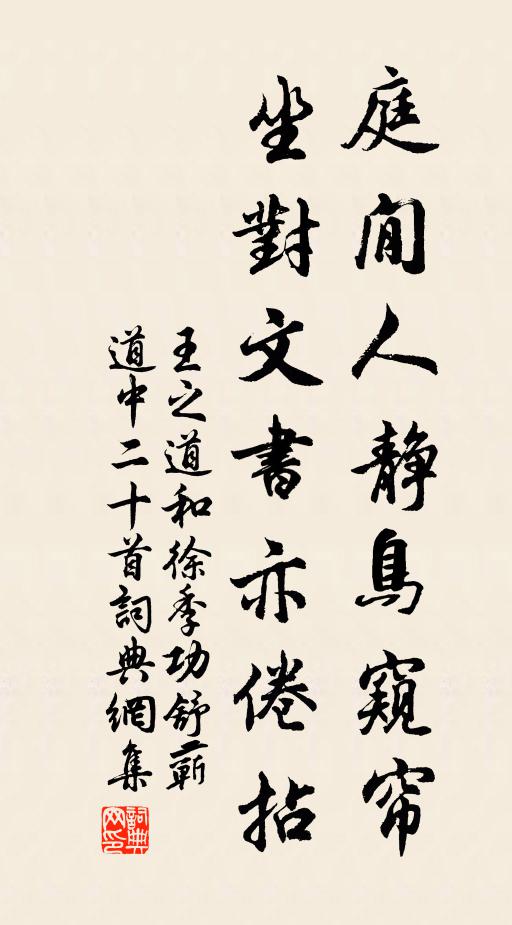 庭閒人靜鳥窺帘
坐對文書亦倦拈
王之道和徐季功舒蘄
道中二十首詞典網集
詞典
网印